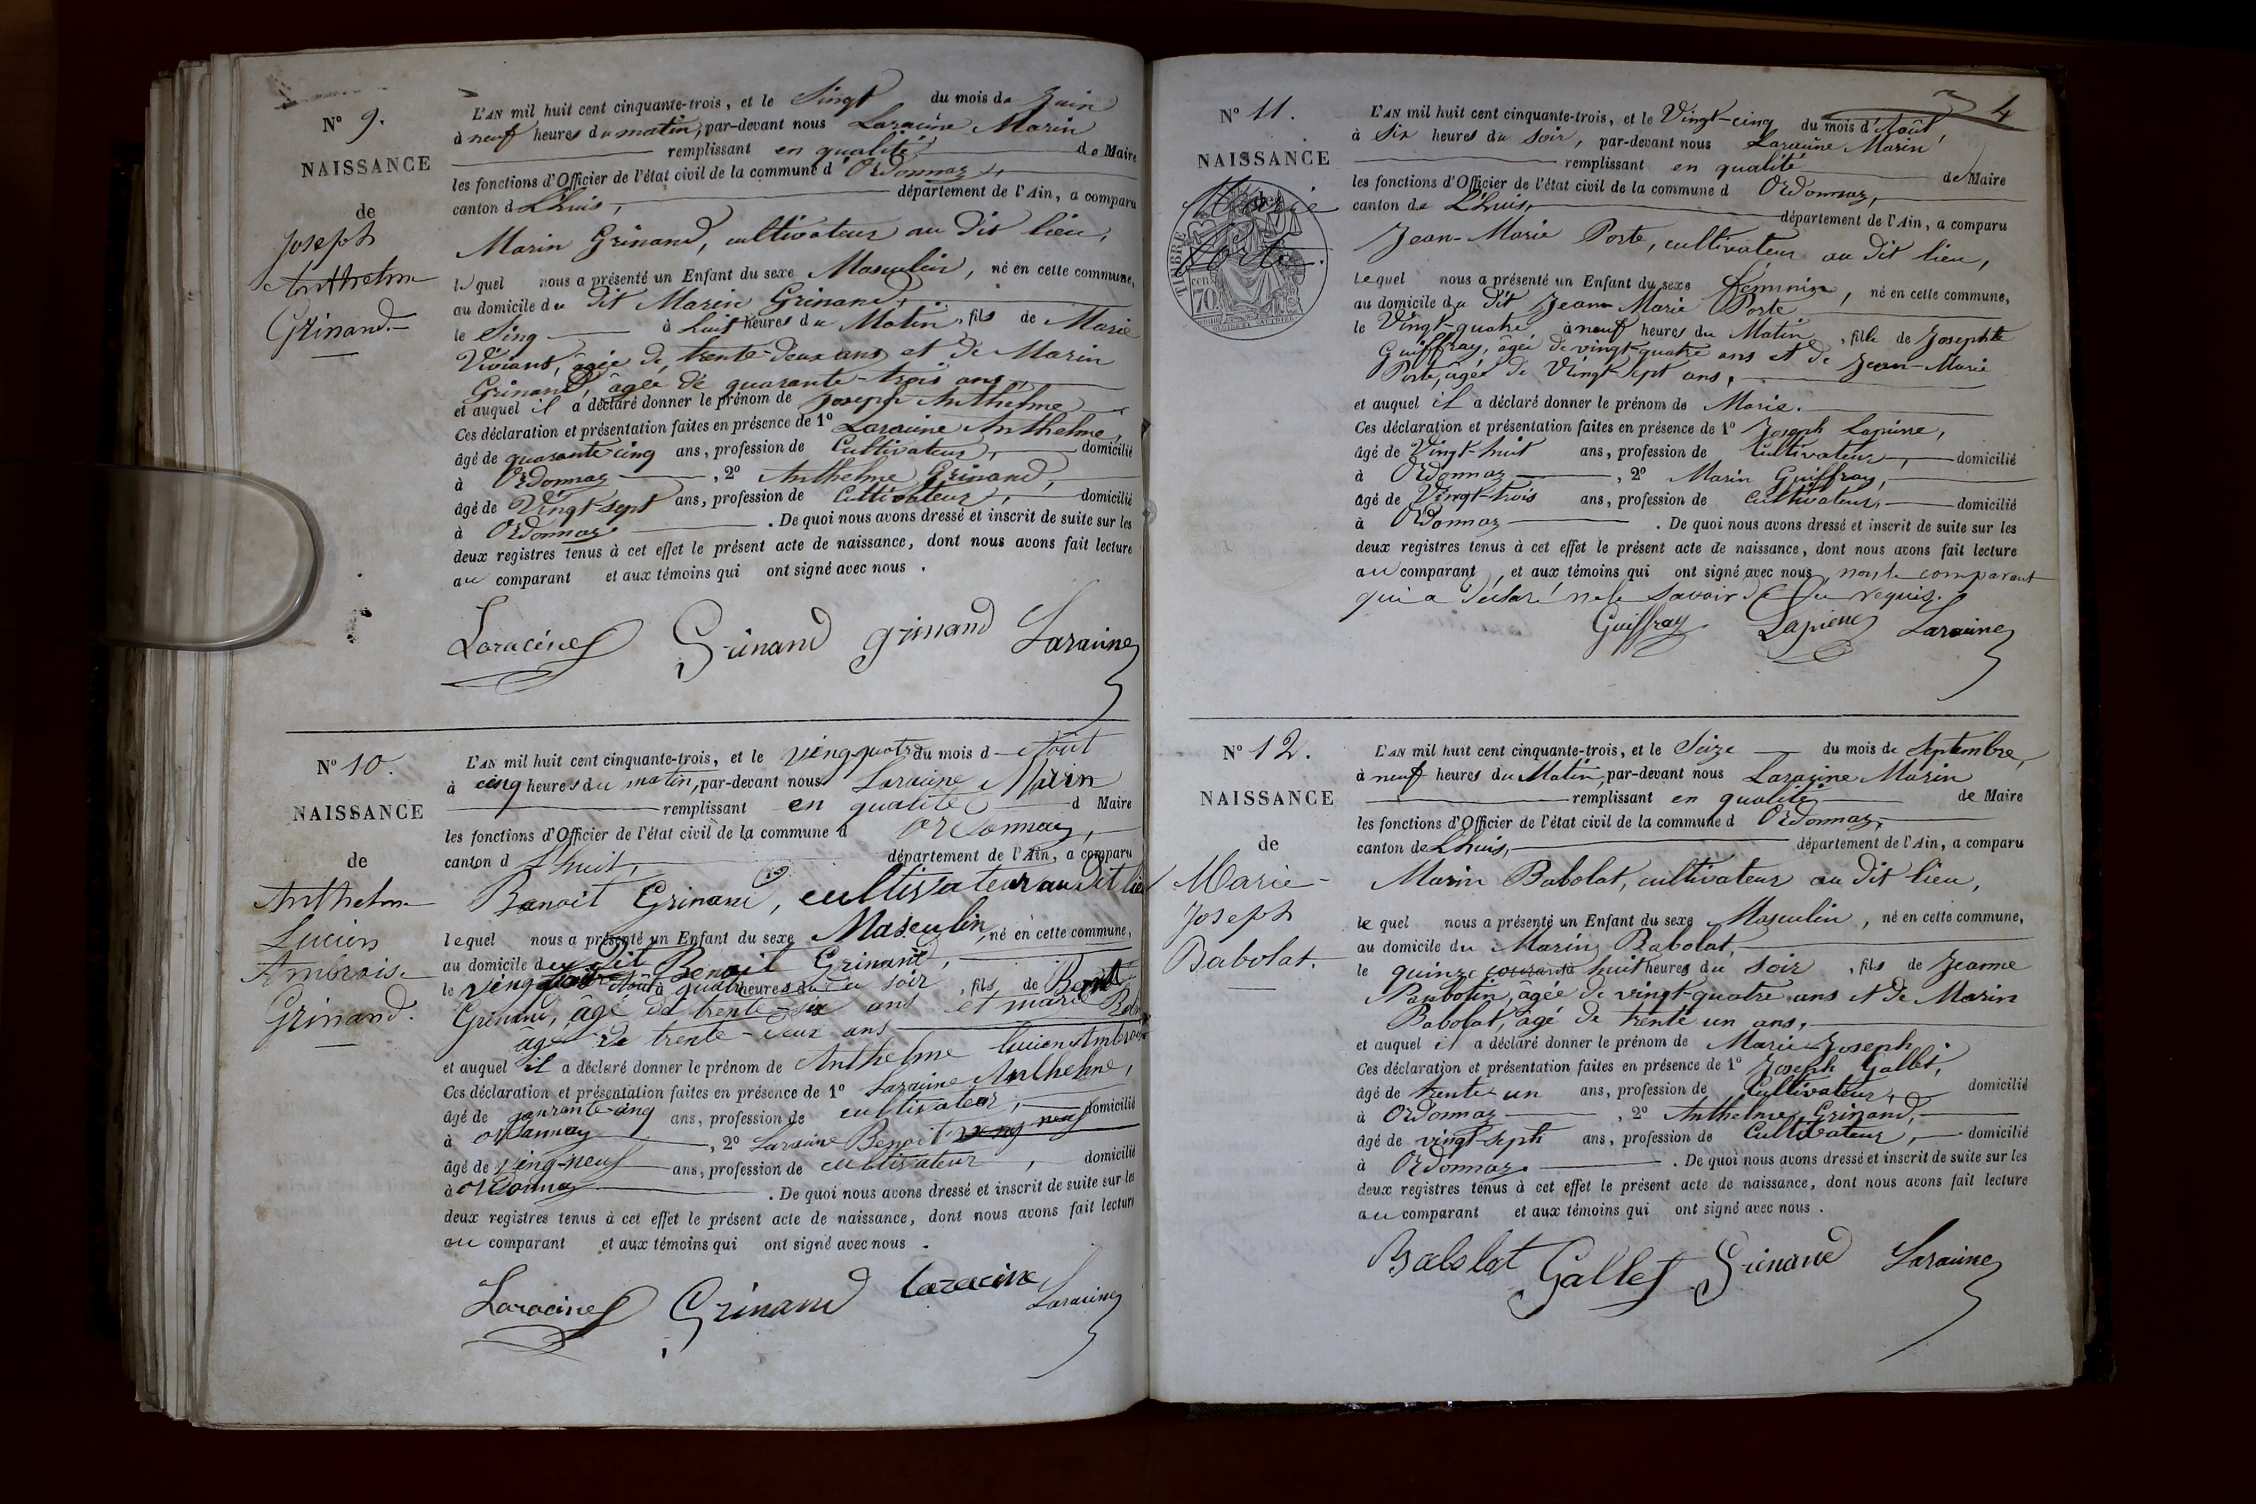 N° 9.
NAISSANCE
de
Joseph
Anthelme
Grinand.
L'AN mil huit cent cinquante-trois, et le Vingt du mois de Juin
à neuf heures du matin, par-devant nous Laracine Marin
remplissant en qualité de Maire
les fonctions d'Officier de l'état civil de la commune d'Ordonnaz
canton d Lhuis, département de l'Ain, a comparu
Marin Grinand, cultivateur au dit lieu,
lequel nous a présenté un Enfant du sexe Masculin, né en cette commune,
au domicile du dit Marin Grinand,
le Ving à huit heures du Matin, fils de Marie
Viviand, âgée de trente-deux ans et de Marin
Grinand, âgée de quarante-trois ans,
et auquel il a déclaré donner le prénom de Joseph Anthelme
Ces déclaration et présentation faites en présence de 1° Laracine Anthelme,
âgé de quarante-cinq ans, profession de Cultivateur, domicilié
à Ordonnaz, 2° Anthelme Grinand,
âgé de Vingt-sept ans, profession de Cultivateur, domicilié
à Ordonnaz. De quoi nous avons dressé et inscrit de suite sur les
deux registres tenus à cet effet le présent acte de naissance, dont nous avons fait lecture
au comparant et aux témoins qui ont signé avec nous.
Laracine Grinand grinand Laracine
N° 10.
NAISSANCE
de
Anthelme
Lucien
Ambroise
Grinand.
L'AN mil huit cent cinquante-trois, et le ving-quatre du mois d Août
à cinq heures du matin, par-devant nous Laracine Marin
remplissant en qualité d Maire
les fonctions d'Officier de l'état civil de la commune d Ordonnaz,
canton d Lhuit, département de l'Ain, a comparu
Benoit Grinand, cultivateur au dit lieu
lequel nous a présenté un Enfant du sexe Masculin, né en cette commune,
au domicile du dit Benoit Grinand,
le ving à quatre heures du soir, fils de Benoit
Grinand, âgé de trente-six ans et marie
âgé de trente-deux ans
et auquel il a déclaré donner le prénom de Anthelme lucien Ambroise
Ces déclaration et présentation faites en présence de 1° Laracine Anthelme,
âgé de quarante-cinq ans, profession de cultivateur, domicilié
à Ordonnaz, 2° Laracine Benoit
âgé de ving-neuf ans, profession de cultivateur, domicilié
à Ordonnaz. De quoi nous avons dressé et inscrit de suite sur les
deux registres tenus à cet effet le présent acte de naissance, dont nous avons fait lecture
au comparant et aux témoins qui ont signé avec nous.
Laracine Grinand laracine Laracine
4
N° 11.
NAISSANCE
de
Marie
Porte.
TIMBRE
70
L'AN mil huit cent cinquante-trois, et le Vingt-cinq du mois d'Août,
à Six heures du Soir, par-devant nous Laracine Marin
remplissant en qualité de Maire
les fonctions d'Officier de l'état civil de la commune d Ordonnaz,
canton de Lhuis, département de l'Ain, a comparu
Jean-Marie Porte, cultivateur au dit lieu,
Lequel nous a présenté un Enfant du sexe Féminin, né en cette commune,
au domicile du dit Jean-Marie Porte
le Vingt-quatre, à neuf heures du Matin, fille de Josephte
Guiffray, âgée de vingt-quatre ans et de Jean-Marie
Porte, âgée de Vingt-sept ans,
et auquel il a déclaré donner le prénom de Marie.
Ces déclaration et présentation faites en présence de 1° Joseph Lapierre,
âgé de Vingt-huit ans, profession de Cultivateur, domicilié
à Ordonnaz, 2° Marin Guiffray,
âgé de Vingt-trois ans, profession de Cultivateur, domicilié
à Ordonnaz. De quoi nous avons dressé et inscrit de suite sur les
deux registres tenus à cet effet le présent acte de naissance, dont nous avons fait lecture
au comparant, et aux témoins qui ont signé avec nous, non le comparant
qui a déclaré ne le savoir de ce requis.
Guiffray Lapierre Laracine
N° 12.
NAISSANCE
de
Marie-
Joseph
Babolat.
L'AN mil huit cent cinquante-trois, et le Seize du mois de Septembre,
à neuf heures du Matin, par-devant nous Laracine Marin
remplissant en qualité de Maire
les fonctions d'Officier de l'état civil de la commune d Ordonnaz,
canton de Lhuis, département de l'Ain, a comparu
Marin Babolat, cultivateur au dit lieu,
le quel nous a présenté un Enfant du sexe Masculin, né en cette commune,
au domicile du Marin Babolat,
le quinze courant à huit heures du Soir, fils de Jeanne
Barbotin, âgée de vingt-quatre ans et de Marin
Babolat, âgé de trente un ans,
et auquel il a déclaré donner le prénom de Marie-Joseph.
Ces déclaration et présentation faites en présence de 1° Joseph Gallet,
âgé de trente-un ans, profession de Cultivateur, domicilié
à Ordonnaz, 2° Anthelme Grinand,
âgé de vingt-sept ans, profession de Cultivateur, domicilié
à Ordonnaz. De quoi nous avons dressé et inscrit de suite sur les
deux registres tenus à cet effet le présent acte de naissance, dont nous avons fait lecture
au comparant et aux témoins qui ont signé avec nous.
Babolat Gallet Grinand Laracine